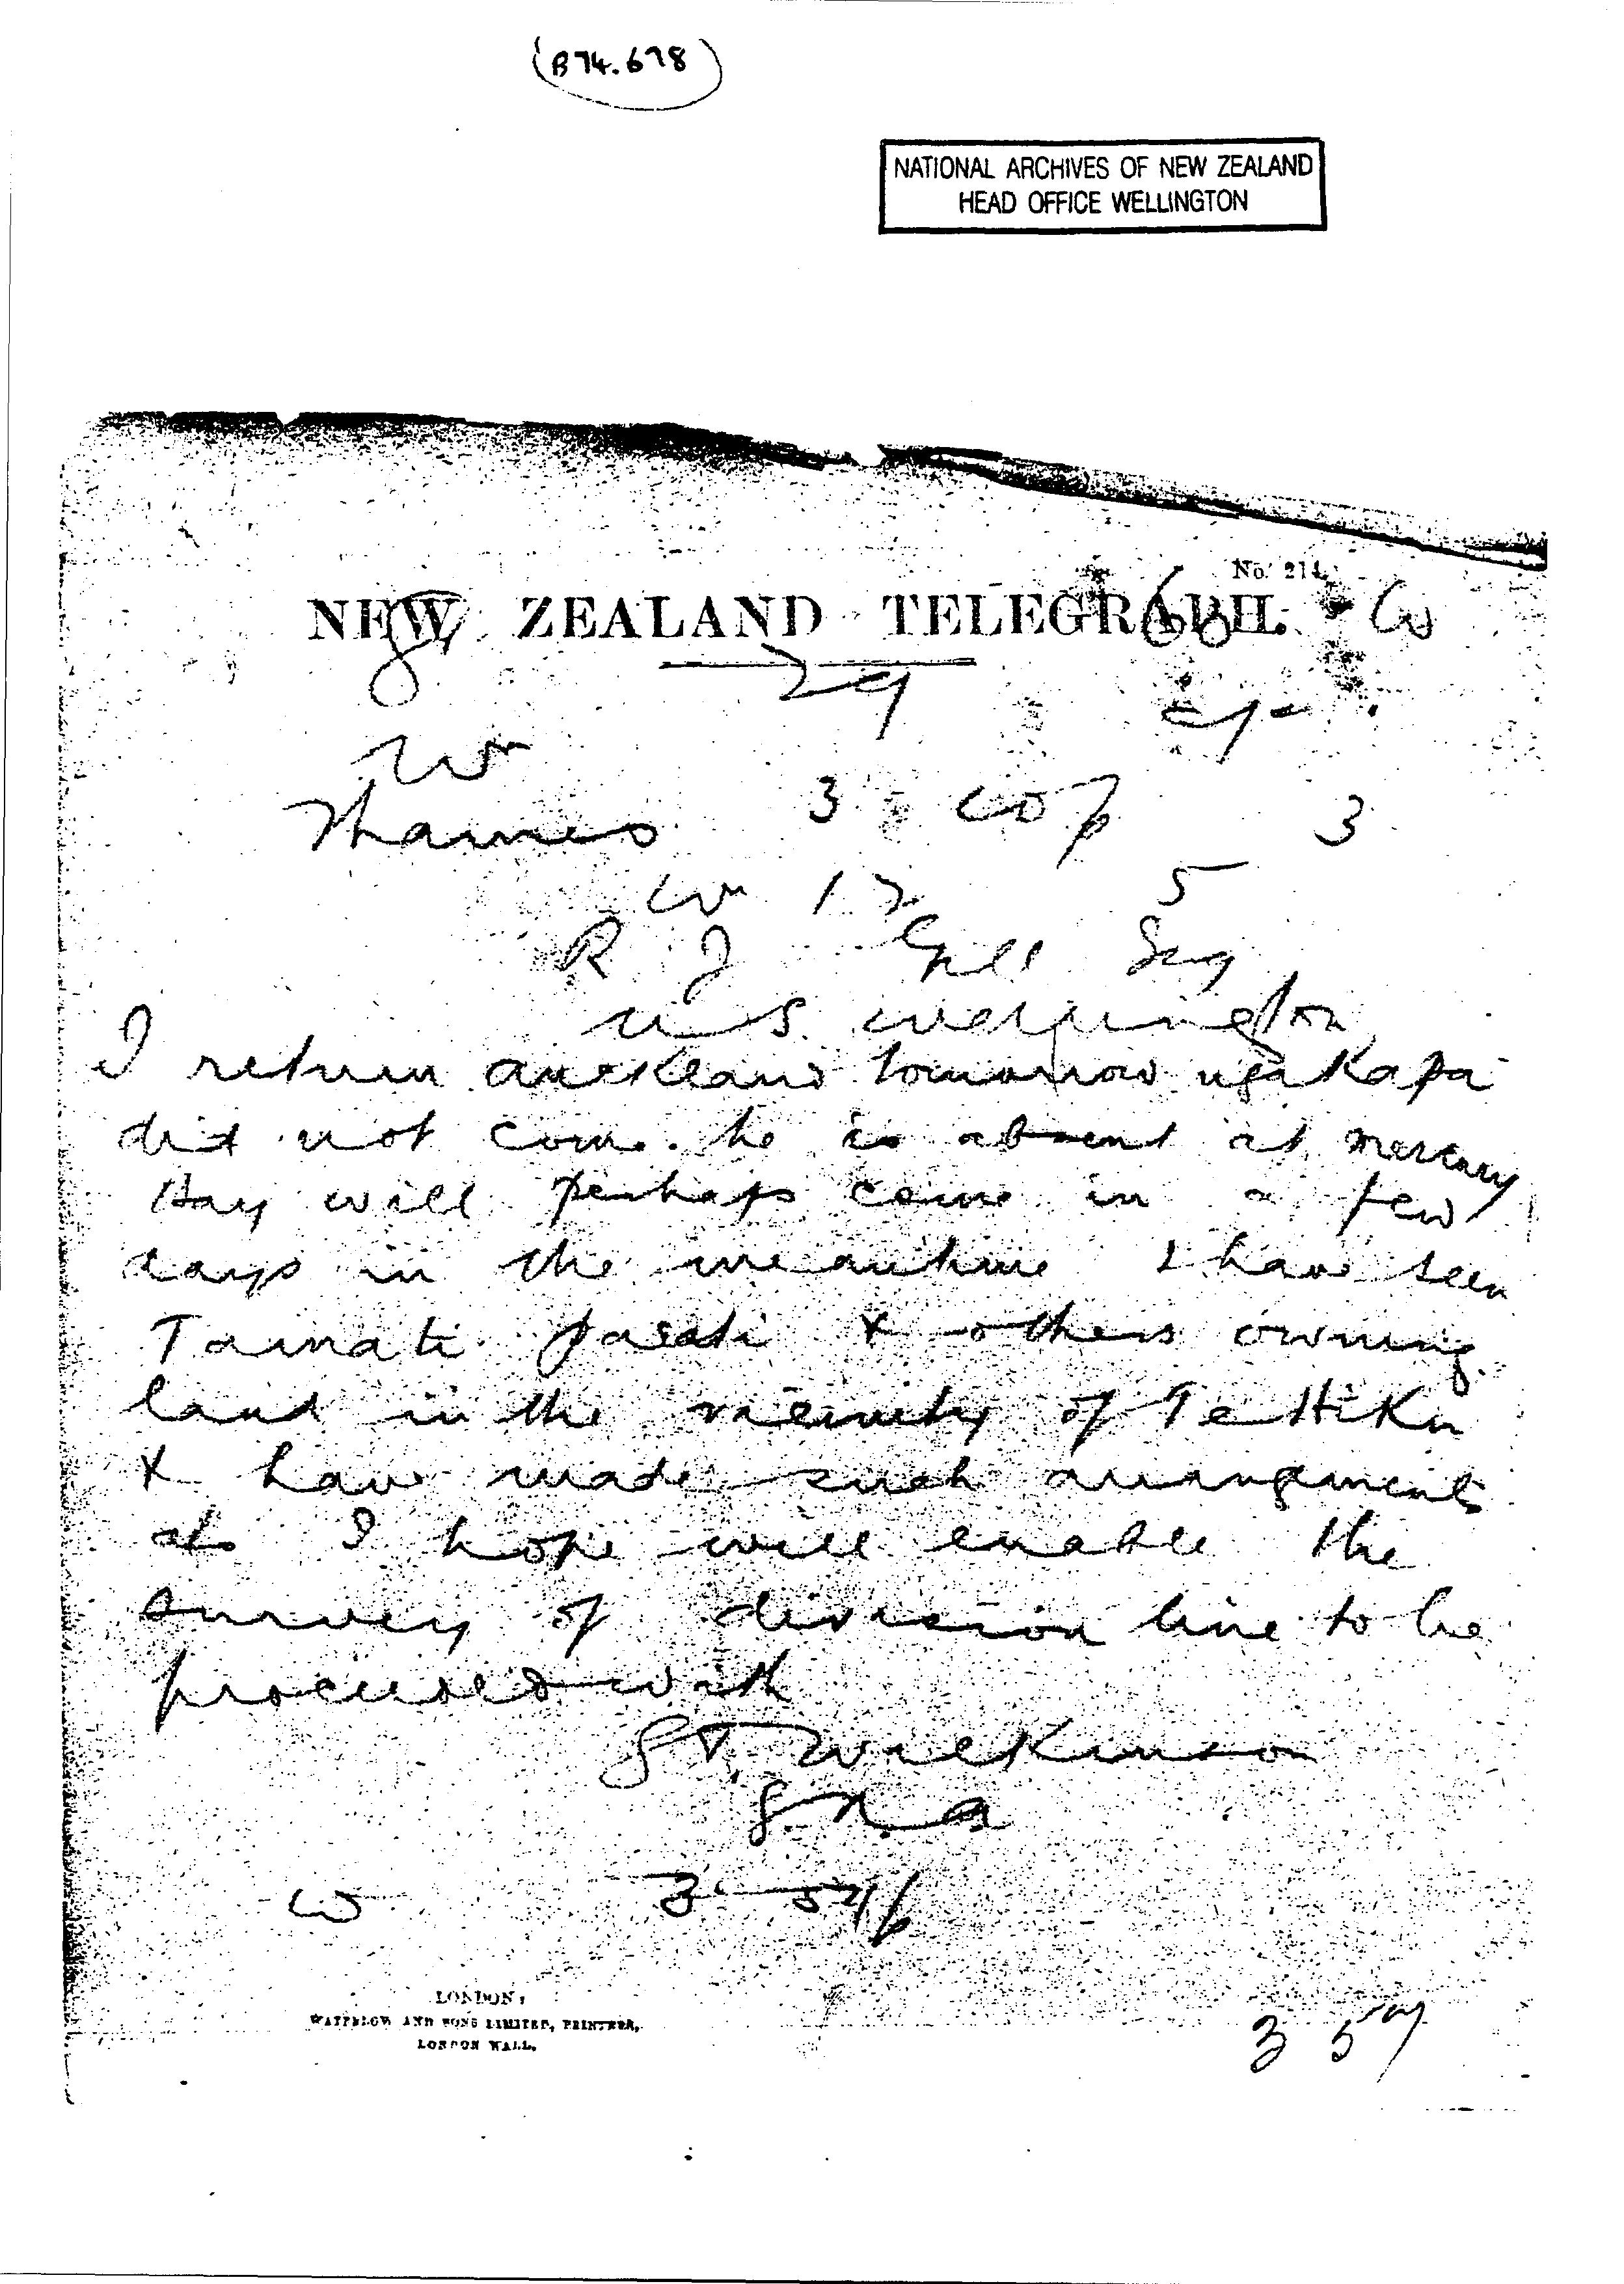 (B74.678)
NATIONAL ARCHIVES OF NEW ZEALAND
HEAD OFFICE WELLINGTON
No. 214
NEW ZEALAND TELEGRAPH.
29
Wn
Thames 3 3
Wn 12 5
R J Gill Esq
N S Wellington
I return auckland tomorrow ngakapa
did not come. he is absent at Mercury
Bay will perhaps come in a few
days in the meantime I have seen
Tamati & others owning
land in the vicinity of Te Hiku
& have made such arrangements
as I hope will enable the
survey of division line to be
proceeded with
G T Wilkinson
W 3 54 p
LONDON:
WATERLOW AND SONS LIMITED, PRINTERS,
LONDON WALL.
3 5